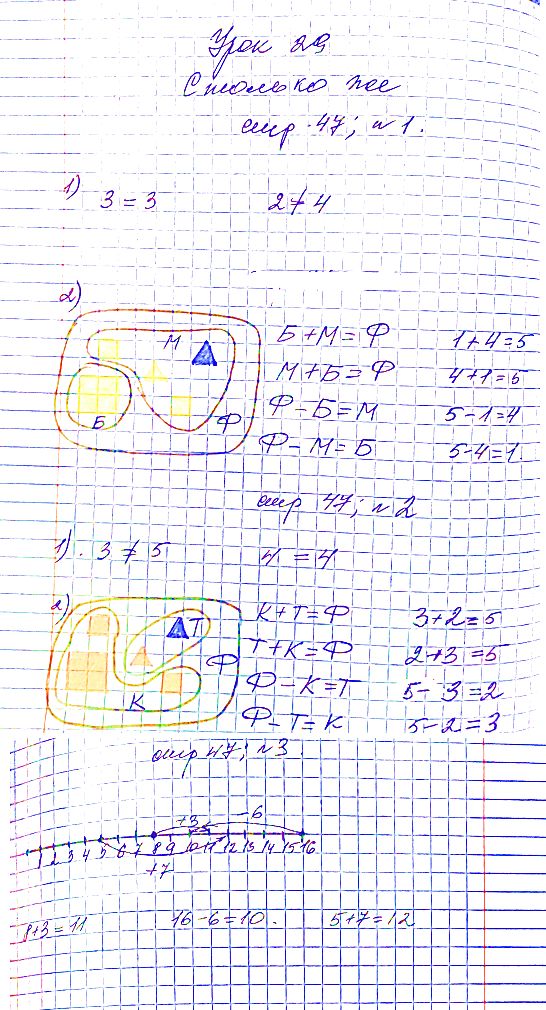 Урок 29
Столько же
стр. 47; № 1.
1) 3 = 3 2 ≠ 4
2)
М
Б
Ф
Б + М = Ф 1 + 4 = 5
М + Б = Ф 4 + 1 = 5
Ф - Б = М 5 - 1 = 4
Ф - М = Б 5 - 4 = 1.
стр 47; № 2
1). 3 ≠ 5 4 = 4
2)
Т
Ф
К
К + Т = Ф 3 + 2 = 5
Т + К = Ф 2 + 3 = 5
Ф - К = Т 5 - 3 = 2
Ф - Т = К 5 - 2 = 3
стр 47; № 3.
+3 -6
1 2 3 4 5 6 7 8 9 10 11 12 13 14 15 16
+7
8+3 = 11 16 - 6 = 10. 5 + 7 = 12